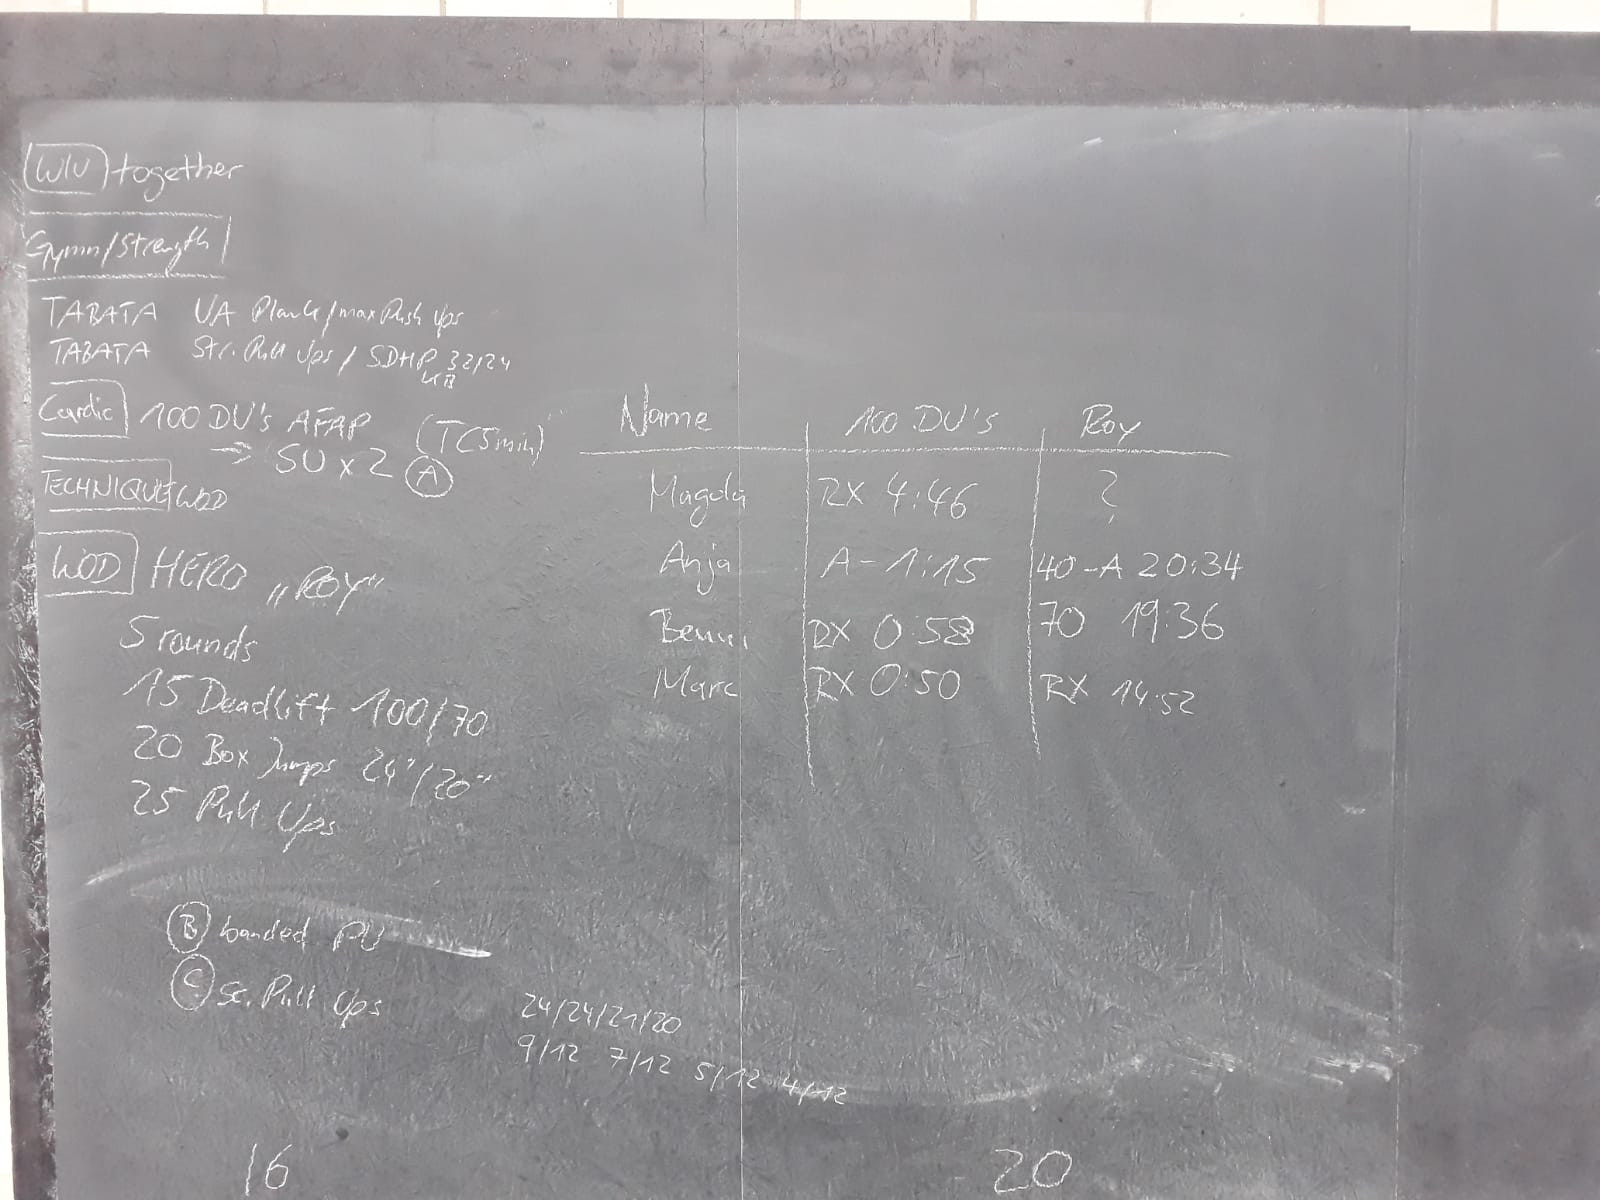 W/U together
Gymn/Strength
TABATA UA Plank/max Push Ups
TABATA Str. Pull Ups / SDHP 32/24
KB
Cardio 100 DU's AFAP (TC 5min)
=> SU x 2 A
TECHNIQUE WOD
WOD HERO „ROY"
5 rounds
15 Deadlift 100/70
20 Box Jumps 24"/20"
25 Pull Ups
B banded PU
C Sc. Pull Ups
24/24/21/20
9/12 7/12 5/12 4/12
16
Name 100 DU's Roy
Magda RX 4:46 ?
Anja A - 1:15 40-A 20:34
Benni RX 0:58 70 19:36
Marc RX 0:50 RX 14:52
20